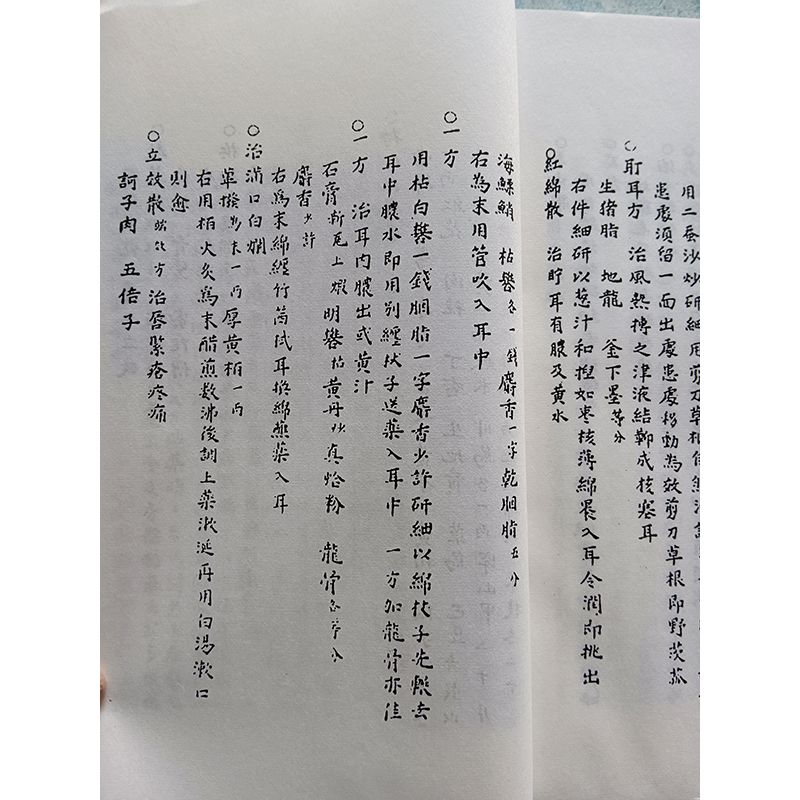 用二蚕沙炒研細用剪刀草根
患處須留一面出處患處移動為效剪刀草根即野茨菰
耵耳方 治風熱搏之津液結鞕成核塞耳
生猪脂 地龍 釜下墨等分
右件細研以葱汁和捏如枣核薄綿裹入耳令潤即挑出
紅綿散 治貯耳有膿及黃水
海螵蛸 枯礬各一錢麝香一字乾胭脂五分
右為末用管吹入耳中
○一方
用枯白礬一錢胭脂一字麝香少許研細以綿杖子先撚去
耳中膿水即用別纏杖子送藥入耳中 一方加龍骨亦佳
○一方 治耳内膿出或黃汁
石膏新瓦上煆 明礬枯黃丹炒真蛤粉 龍骨各等分
麝香少許
右為末綿纏竹筒拭耳換綿蘸藥入耳
○治滿口白爛
蓽撥為末一两厚黃栢一两
右用栢火炙為末醋煎数沸後調上藥漱涎再用白湯漱口
則愈
○立效散 治唇緊瘡疼痛
訶子肉 五倍子